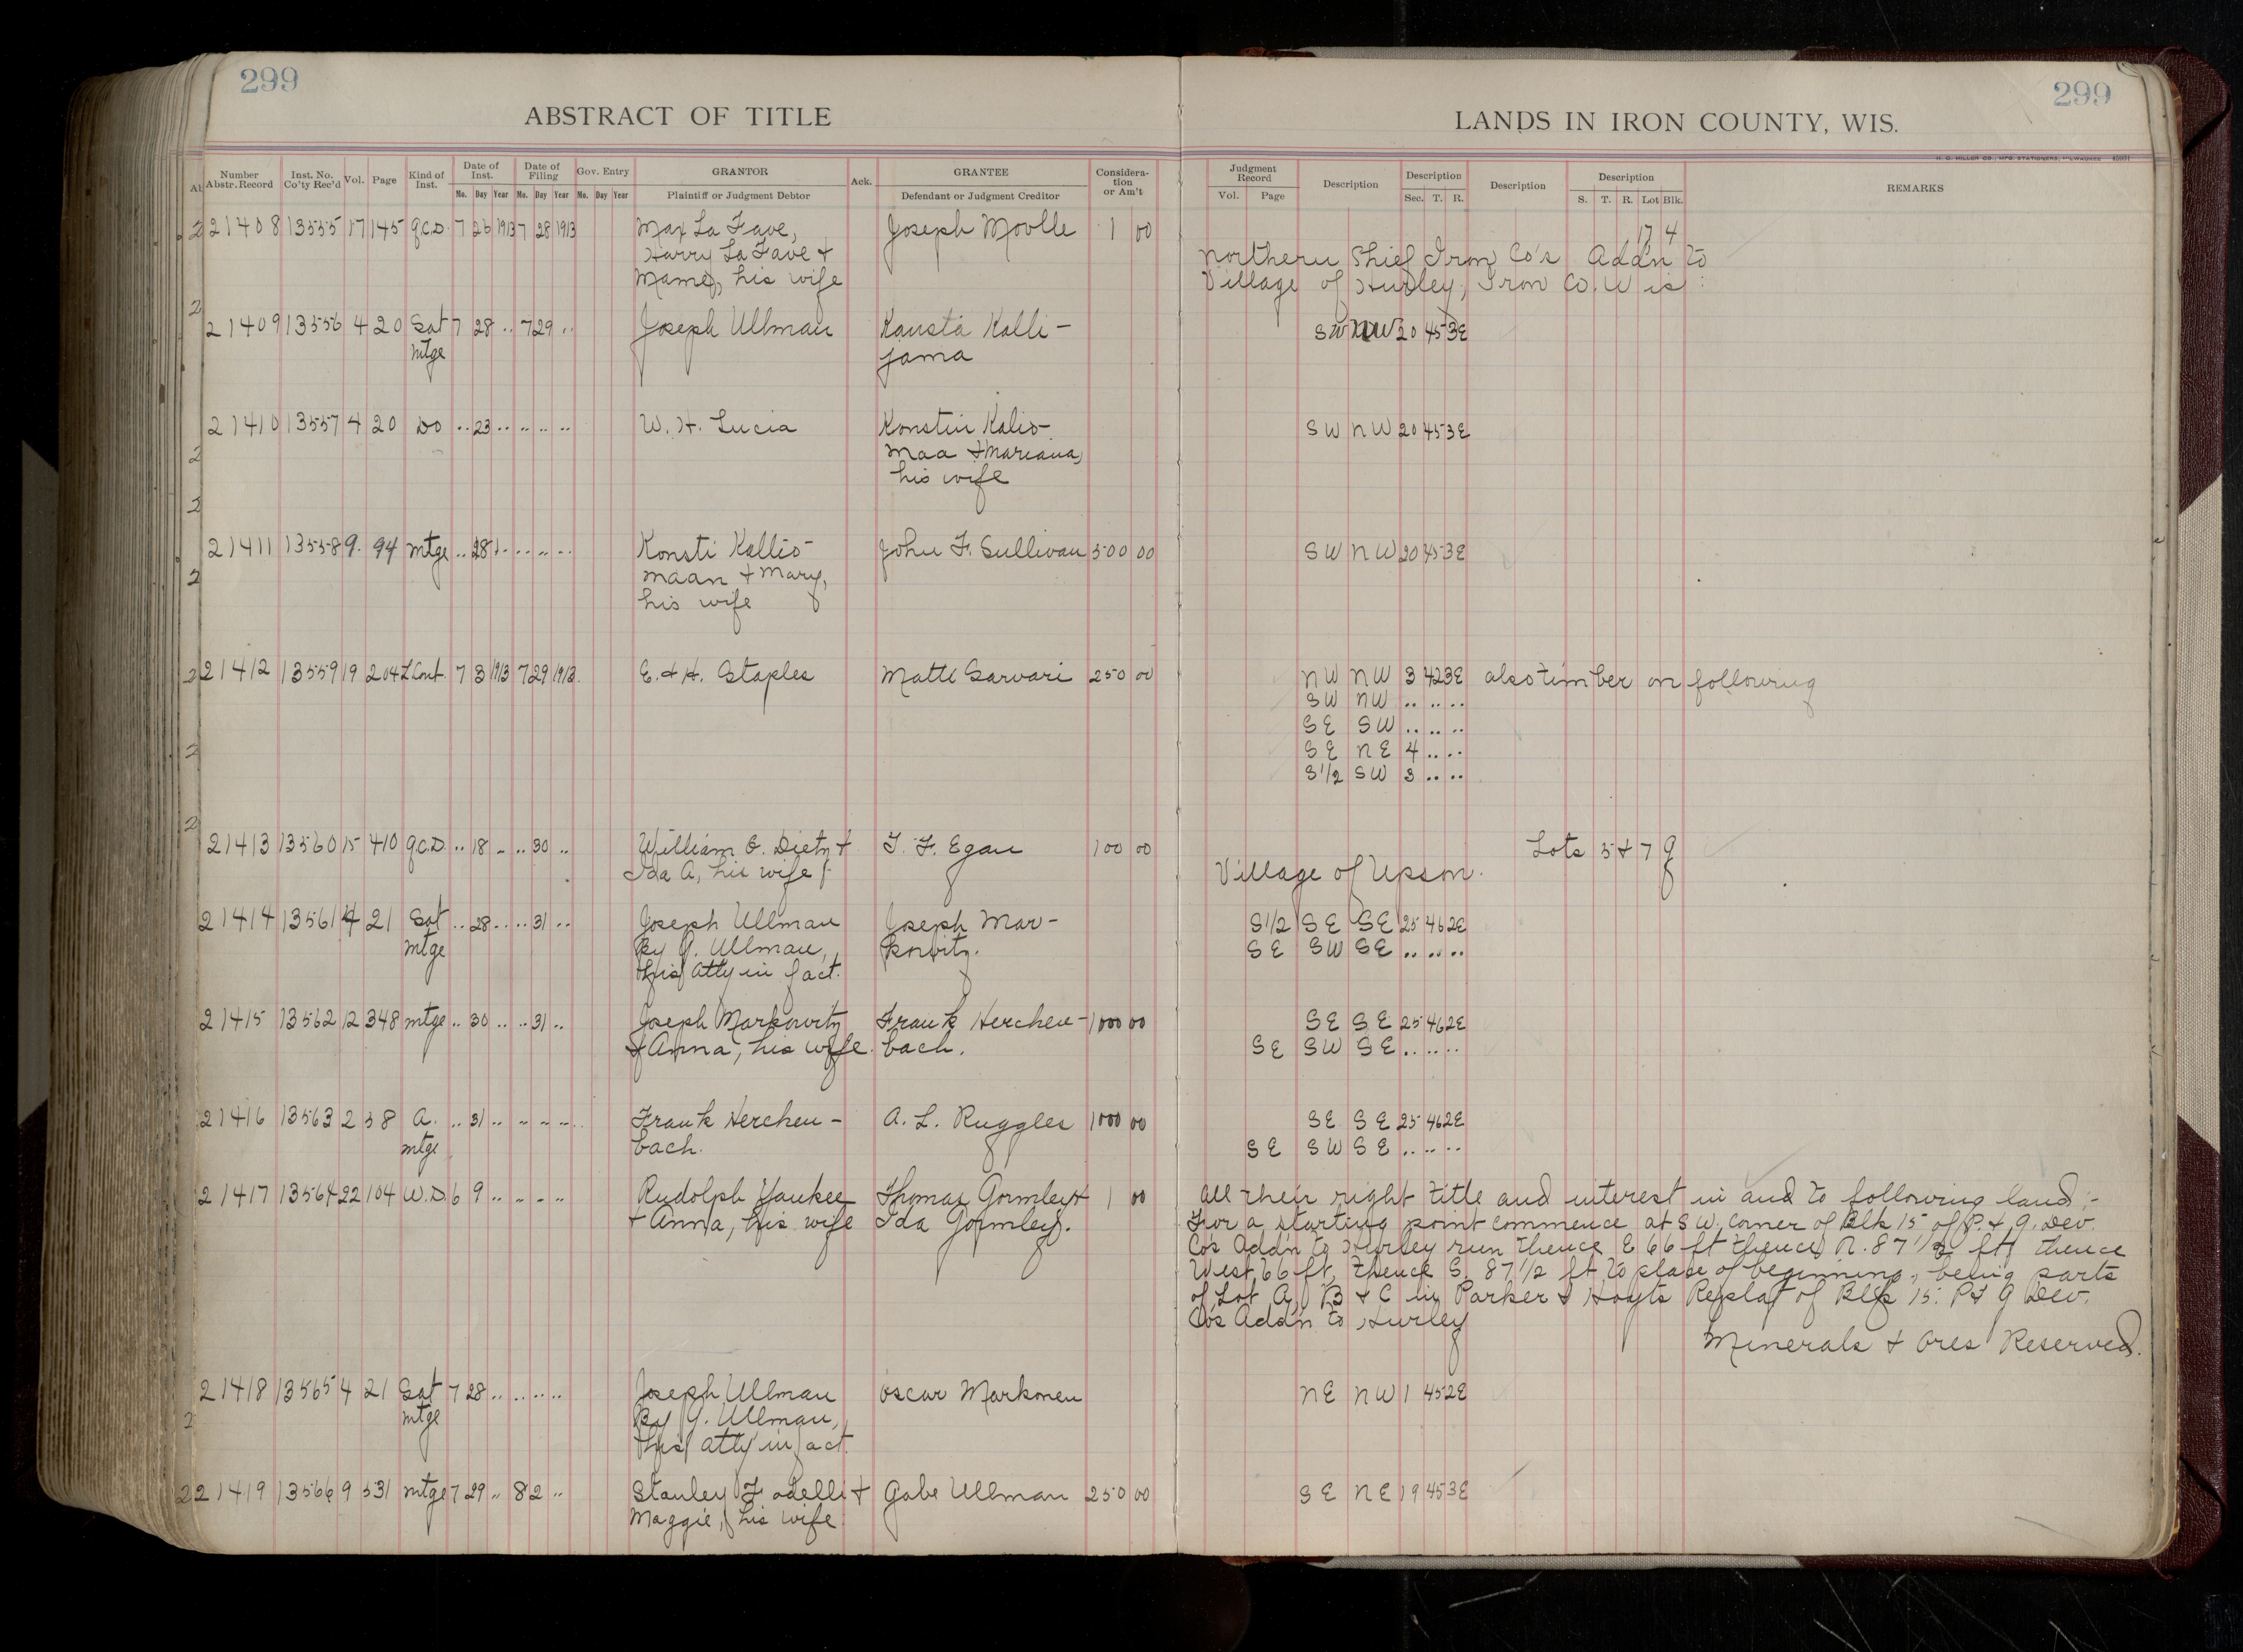 299
299
ABSTRACT OF TITLE
LANDS IN IRON COUNTY, WIS.
H. C. MILLER CO., MFG. STATIONERS, MILWAUKEE
Number Abstr. Record Inst. No. Co'ty Rec'd Vol. Page Kind of Inst. Date of Inst. Date of Filing Gov. Entry GRANTOR Ack. GRANTEE Considera- tion or Am't Judgment Record Description Description Description Description REMARKS
Mo. Day Year Mo. Day Year Mo. Day Year Plaintiff or Judgment Debtor Defendant or Judgment Creditor Vol. Page Sec. T. R. S. T. R. Lot Blk.
21408 13555 17 145 Q.C.D. 7 26 1913 7 28 1913 Max La Fave, Joseph Movlle 1 00 17 4
Harry La Fave + Northern Chief Iron Co's Add'n to
Mame, his wife Village of Hurley, Iron Co. Wis.
21409 13556 4 20 Sat 7 28 .. 7 29 .. Joseph Ullman Kansta Kalli- SW NW 20 45 3E
mtge jama
21410 13557 4 20 Do .. 23 .. .. .. .. W. H. Lucia Konstin Kalio- SW NW 20 45 3E
maa + Mariana,
his wife
21411 13558 9. 94 mtge .. 28 .. .. .. .. Konsti Kallio- John F. Sullivan 500 00 SW NW 20 45 3E
maan + Mary,
his wife
21412 13559 19 204 L Cont. 7 3 1913 7 29 1913. E. + H. Staples Matte Sarvari 250 00 NW NW 3 42 3E also timber on following
SW NW .. .. ..
SE SW .. .. ..
SE NE 4 .. ..
S1/2 SW 3 .. ..
21413 13560 15 410 Q.C.D. .. 18 .. .. 30 .. William E. Dietz + T. F. Egan 100 00 Lots 5 + 7 9
Ida A, his wife Village of Upson.
21414 13561 4 21 Sat .. 28 .. .. 31 .. Joseph Ullman Joseph Mar- S1/2 SE SE 25 46 2E
mtge By G. Ullman, kowitz. SE SW SE .. .. ..
his atty in fact.
21415 13562 12 348 mtge .. 30 .. .. 31 .. Joseph Markowitz Frank Herchen- 1000 00 SE SE 25 46 2E
+ Anna, his wife. bach. SE SW SE .. .. ..
21416 13563 2 38 A. .. 31 .. .. .. .. Frank Herchen- A. L. Ruggles 1000 00 SE SE 25 46 2E
mtge bach. SE SW SE .. .. ..
21417 13564 22 104 W.D. 6 9 .. .. .. .. Rudolph Yankee Thomas Gormley + 1 00 All their right title and interest in and to following land:-
+ Anna, his wife Ida Gormley. For a starting point commence at S W. corner of Blk 15 of P. + G. Dev.
Co's Add'n to Hurley run thence E 66 ft thence N. 87 1/2 ft thence
West 66 ft, thence S. 87 1/2 ft to place of beginning, being parts
of Lot A, B + C in Parker + Hoyts Replat of Blk 15. P + G Dev.
Co's Add'n to Hurley
Minerals + Ores Reserved.
21418 13565 4 21 Sat 7 28 .. .. .. .. Joseph Ullman Oscar Markonen NE NW 1 45 2E
mtge By G. Ullman,
his atty in fact.
21419 13566 9 531 mtge 7 29 .. 8 2 .. Stanley Fadelli + Gabe Ullman 250 00 SE NE 19 45 3E
Maggie, his wife